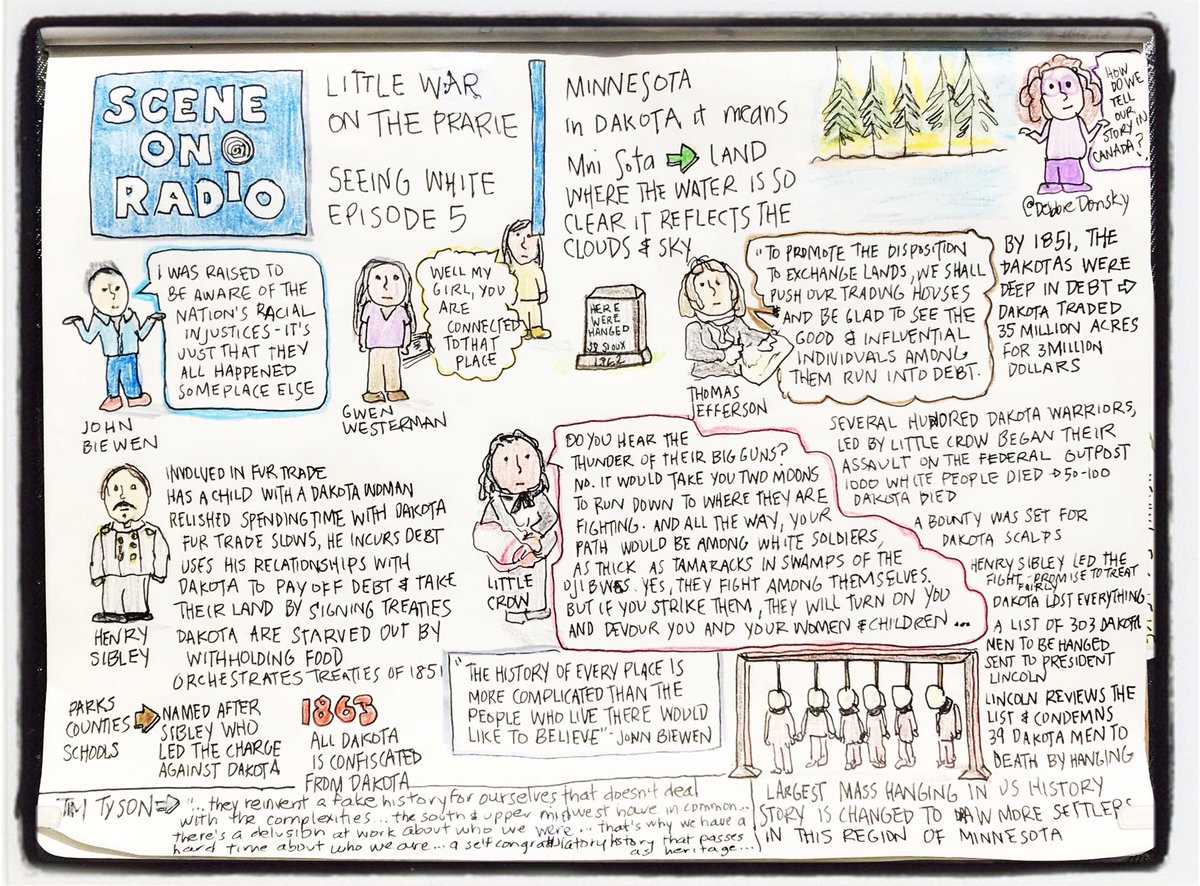 SCENE
ON
RADIO
LITTLE WAR
ON THE PRARIE
SEEING WHITE
EPISODE 5
MINNESOTA
in DAKOTA it means
Mni Sota LAND
WHERE THE WATER IS SO
CLEAR IT REFLECTS THE
CLOUDS & SKY
HOW
DO WE
TELL
OUR
STORY IN
CANADA?
@Debbie Donsky
I WAS RAISED TO
BE AWARE OF THE
NATION'S RACIAL
INJUSTICES - IT'S
JUST THAT THEY
ALL HAPPENED
SOMEPLACE ELSE
JOHN
BIEWEN
WELL MY
GIRL, YOU
ARE
CONNECTED
TO THAT
PLACE
GWEN
WESTERMAN
HERE
WERE
HANGED
38 SIOUX
1862
"TO PROMOTE THE DISPOSITION
TO EXCHANGE LANDS, WE SHALL
PUSH OUR TRADING HOUSES
AND BE GLAD TO SEE THE
GOOD & INFLUENTIAL
INDIVIDUALS AMONG
THEM RUN INTO DEBT.
THOMAS
JEFFERSON
BY 1851, THE
DAKOTAS WERE
DEEP IN DEBT
DAKOTA TRADED
35 MILLION ACRES
FOR 3 MILLION
DOLLARS
HENRY
SIBLEY
INVOLVED IN FUR TRADE
HAS A CHILD WITH A DAKOTA WOMAN
RELISHED SPENDING TIME WITH DAKOTA
FUR TRADE SLOWS, HE INCURS DEBT
USES HIS RELATIONSHIPS WITH
DAKOTA TO PAY OFF DEBT & TAKE
THEIR LAND BY SIGNING TREATIES
DAKOTA ARE STARVED OUT BY
WITHHOLDING FOOD
ORCHESTRATES TREATIES OF 1851
LITTLE
CROW
DO YOU HEAR THE
THUNDER OF THEIR BIG GUNS?
NO. IT WOULD TAKE YOU TWO MOONS
TO RUN DOWN TO WHERE THEY ARE
FIGHTING. AND ALL THE WAY, YOUR
PATH WOULD BE AMONG WHITE SOLDIERS,
AS THICK AS TAMARACKS IN SWAMPS OF THE
OJIBWES. YES, THEY FIGHT AMONG THEMSELVES.
BUT IF YOU STRIKE THEM, THEY WILL TURN ON YOU
AND DEVOUR YOU AND YOUR WOMEN & CHILDREN ...
SEVERAL HUNDRED DAKOTA WARRIORS,
LED BY LITTLE CROW BEGAN THEIR
ASSAULT ON THE FEDERAL OUTPOST
1000 WHITE PEOPLE DIED 50-100
DAKOTA DIED
A BOUNTY WAS SET FOR
DAKOTA SCALPS
HENRY SIBLEY LED THE
FIGHT - PROMISE TO TREAT
FAIRLY
DAKOTA LOST EVERYTHING
A LIST OF 303 DAKOTA
MEN TO BE HANGED
SENT TO PRESIDENT
LINCOLN
LINCOLN REVIEWS THE
LIST & CONDEMNS
39 DAKOTA MEN TO
DEATH BY HANGING
PARKS
COUNTIES
SCHOOLS
NAMED AFTER
SIBLEY WHO
LED THE CHARGE
AGAINST DAKOTA
1863
ALL DAKOTA
IS CONFISCATED
FROM DAKOTA
"THE HISTORY OF EVERY PLACE IS
MORE COMPLICATED THAN THE
PEOPLE WHO LIVE THERE WOULD
LIKE TO BELIEVE" - JOHN BIEWEN
LARGEST MASS HANGING IN US HISTORY
STORY IS CHANGED TO DRAW MORE SETTLERS
IN THIS REGION OF MINNESOTA
TIM TYSON "... they reinvent a fake history for ourselves that doesn't deal
with the complexities... the south & upper midwest have in common...
there's a delusion at work about who we were... that's why we have a
hard time about who we are... a self congratulatory history that passes
as heritage...